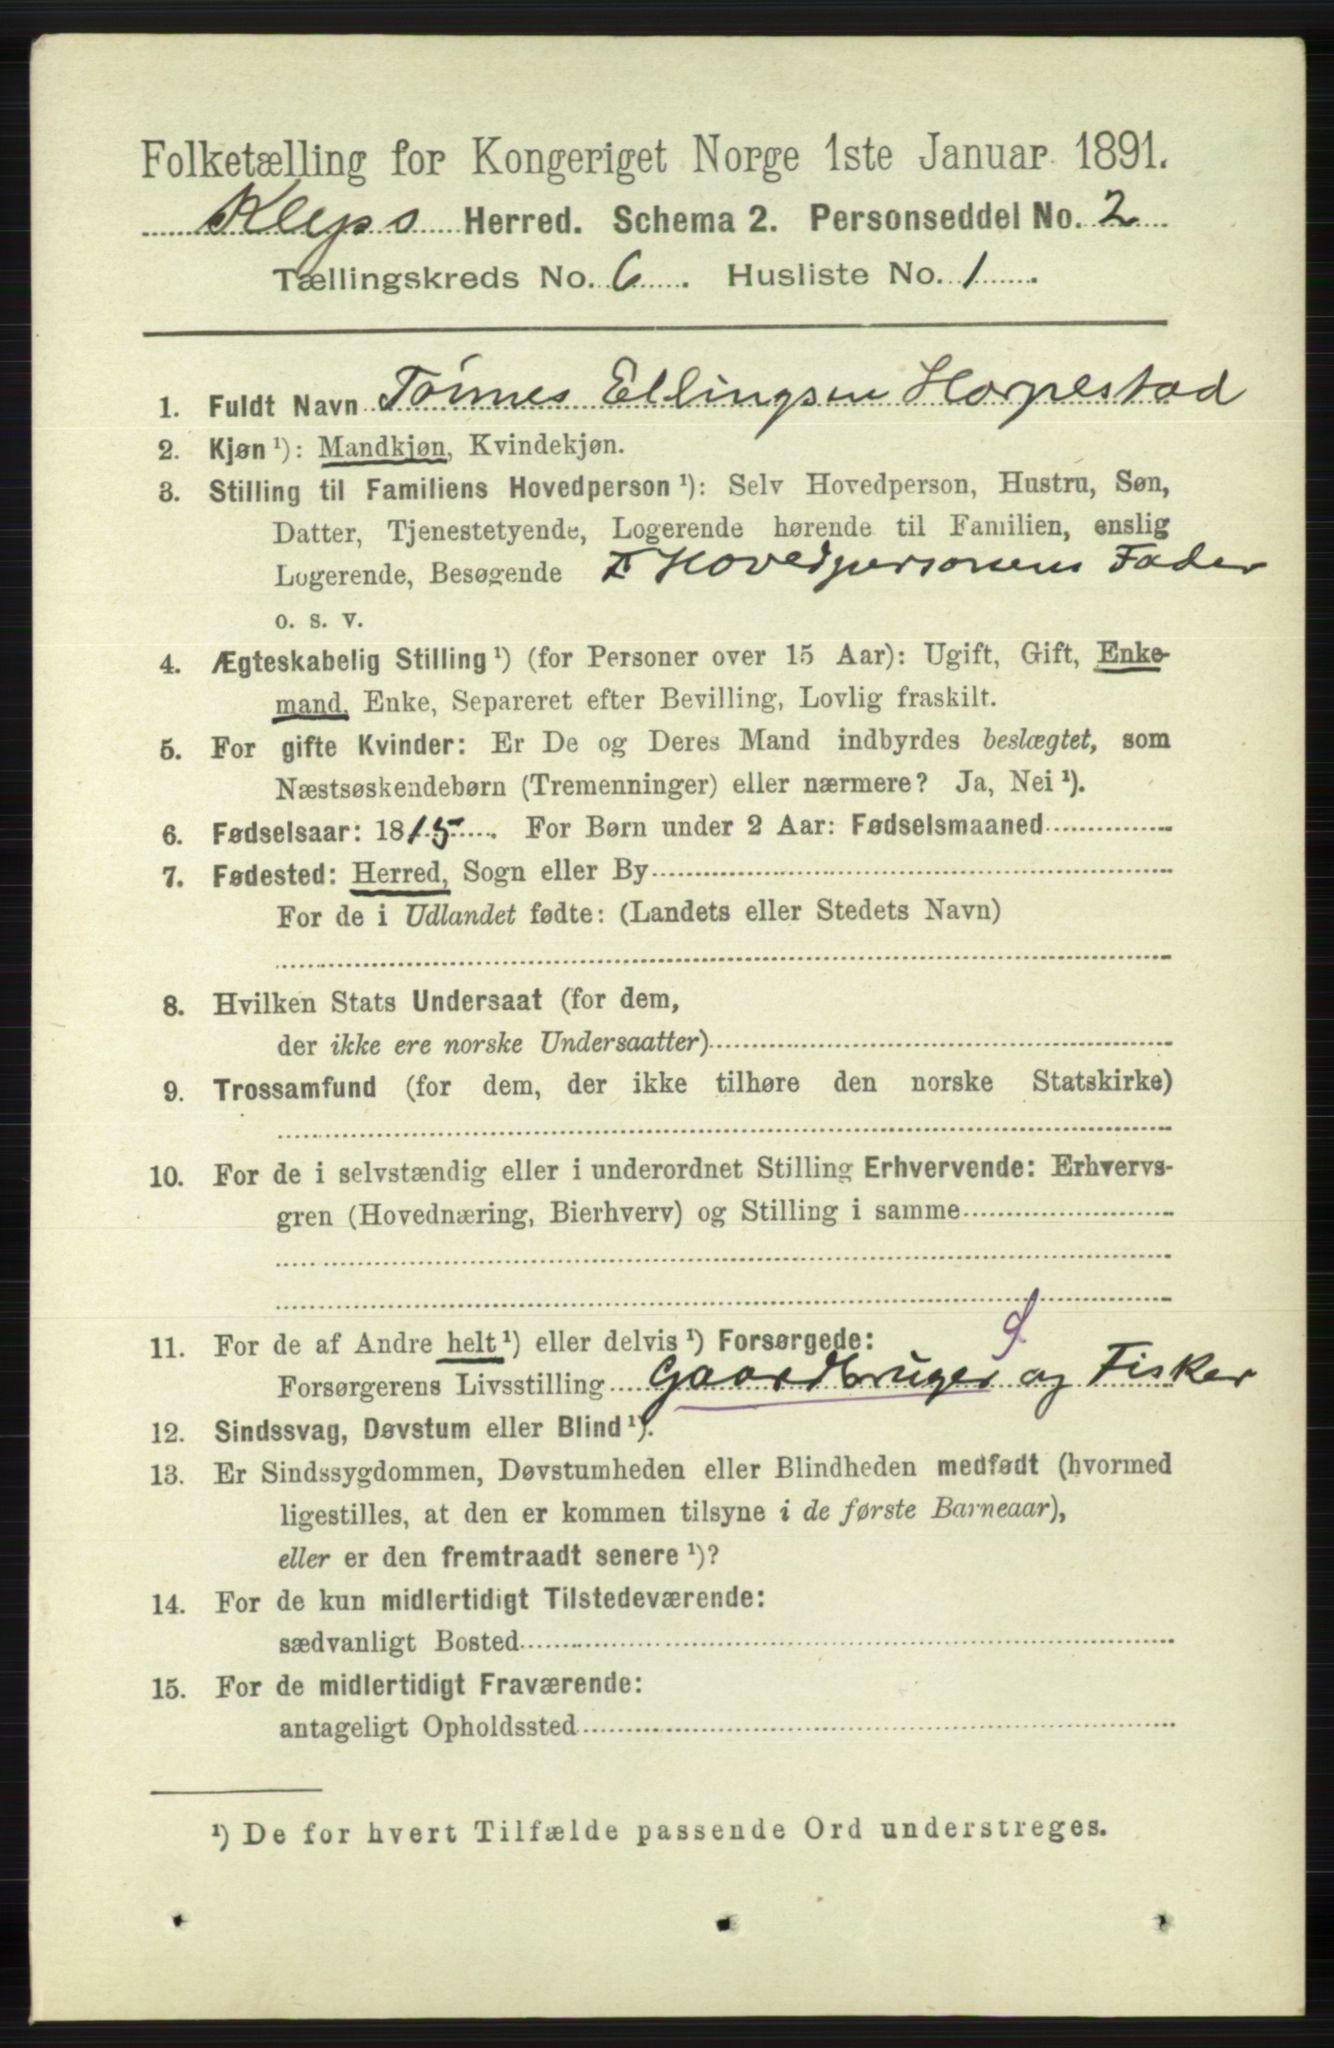 Folketælling for Kongeriget Norge 1ste Januar 1891.
Kleps Herred. Schema 2. Personseddel No. 2
Tællingskreds No. 6. Husliste No. 1.
1. Fuldt Navn Tønnes Ellingsen Horpestad
2. Kjøn ¹): Mandkjøn, Kvindekjøn.
3. Stilling til Familiens Hovedperson ¹): Selv Hovedperson, Hustru, Søn,
Datter, Tjenestetyende, Logerende hørende til Familien, enslig
Logerende, Besøgende Hovedpersonens Fader
o. s. v.
4. Ægteskabelig Stilling ¹) (for Personer over 15 Aar): Ugift, Gift, Enke-
mand, Enke, Separeret efter Bevilling, Lovlig fraskilt.
5. For gifte Kvinder: Er De og Deres Mand indbyrdes beslægtet, som
Næstsøskendebørn (Tremenninger) eller nærmere? Ja, Nei ¹).
6. Fødselsaar: 1815. For Børn under 2 Aar: Fødselsmaaned
7. Fødested: Herred, Sogn eller By
For de i Udlandet fødte: (Landets eller Stedets Navn)
8. Hvilken Stats Undersaat (for dem,
der ikke ere norske Undersaatter)
9. Trossamfund (for dem, der ikke tilhøre den norske Statskirke)
10. For de i selvstændig eller i underordnet Stilling Erhvervende: Erhvervs-
gren (Hovednæring, Bierhverv) og Stilling i samme
11. For de af Andre helt ¹) eller delvis ¹) Forsørgede:
Forsørgerens Livsstilling Gaardbruger og Fisker
12. Sindssvag, Døvstum eller Blind ¹).
13. Er Sindssygdommen, Døvstumheden eller Blindheden medfødt (hvormed
ligestilles, at den er kommen tilsyne i de første Barneaar),
eller er den fremtraadt senere ¹)?
14. For de kun midlertidigt Tilstedeværende:
sædvanligt Bosted
15. For de midlertidigt Fraværende:
antageligt Opholdssted
¹) De for hvert Tilfælde passende Ord understreges.